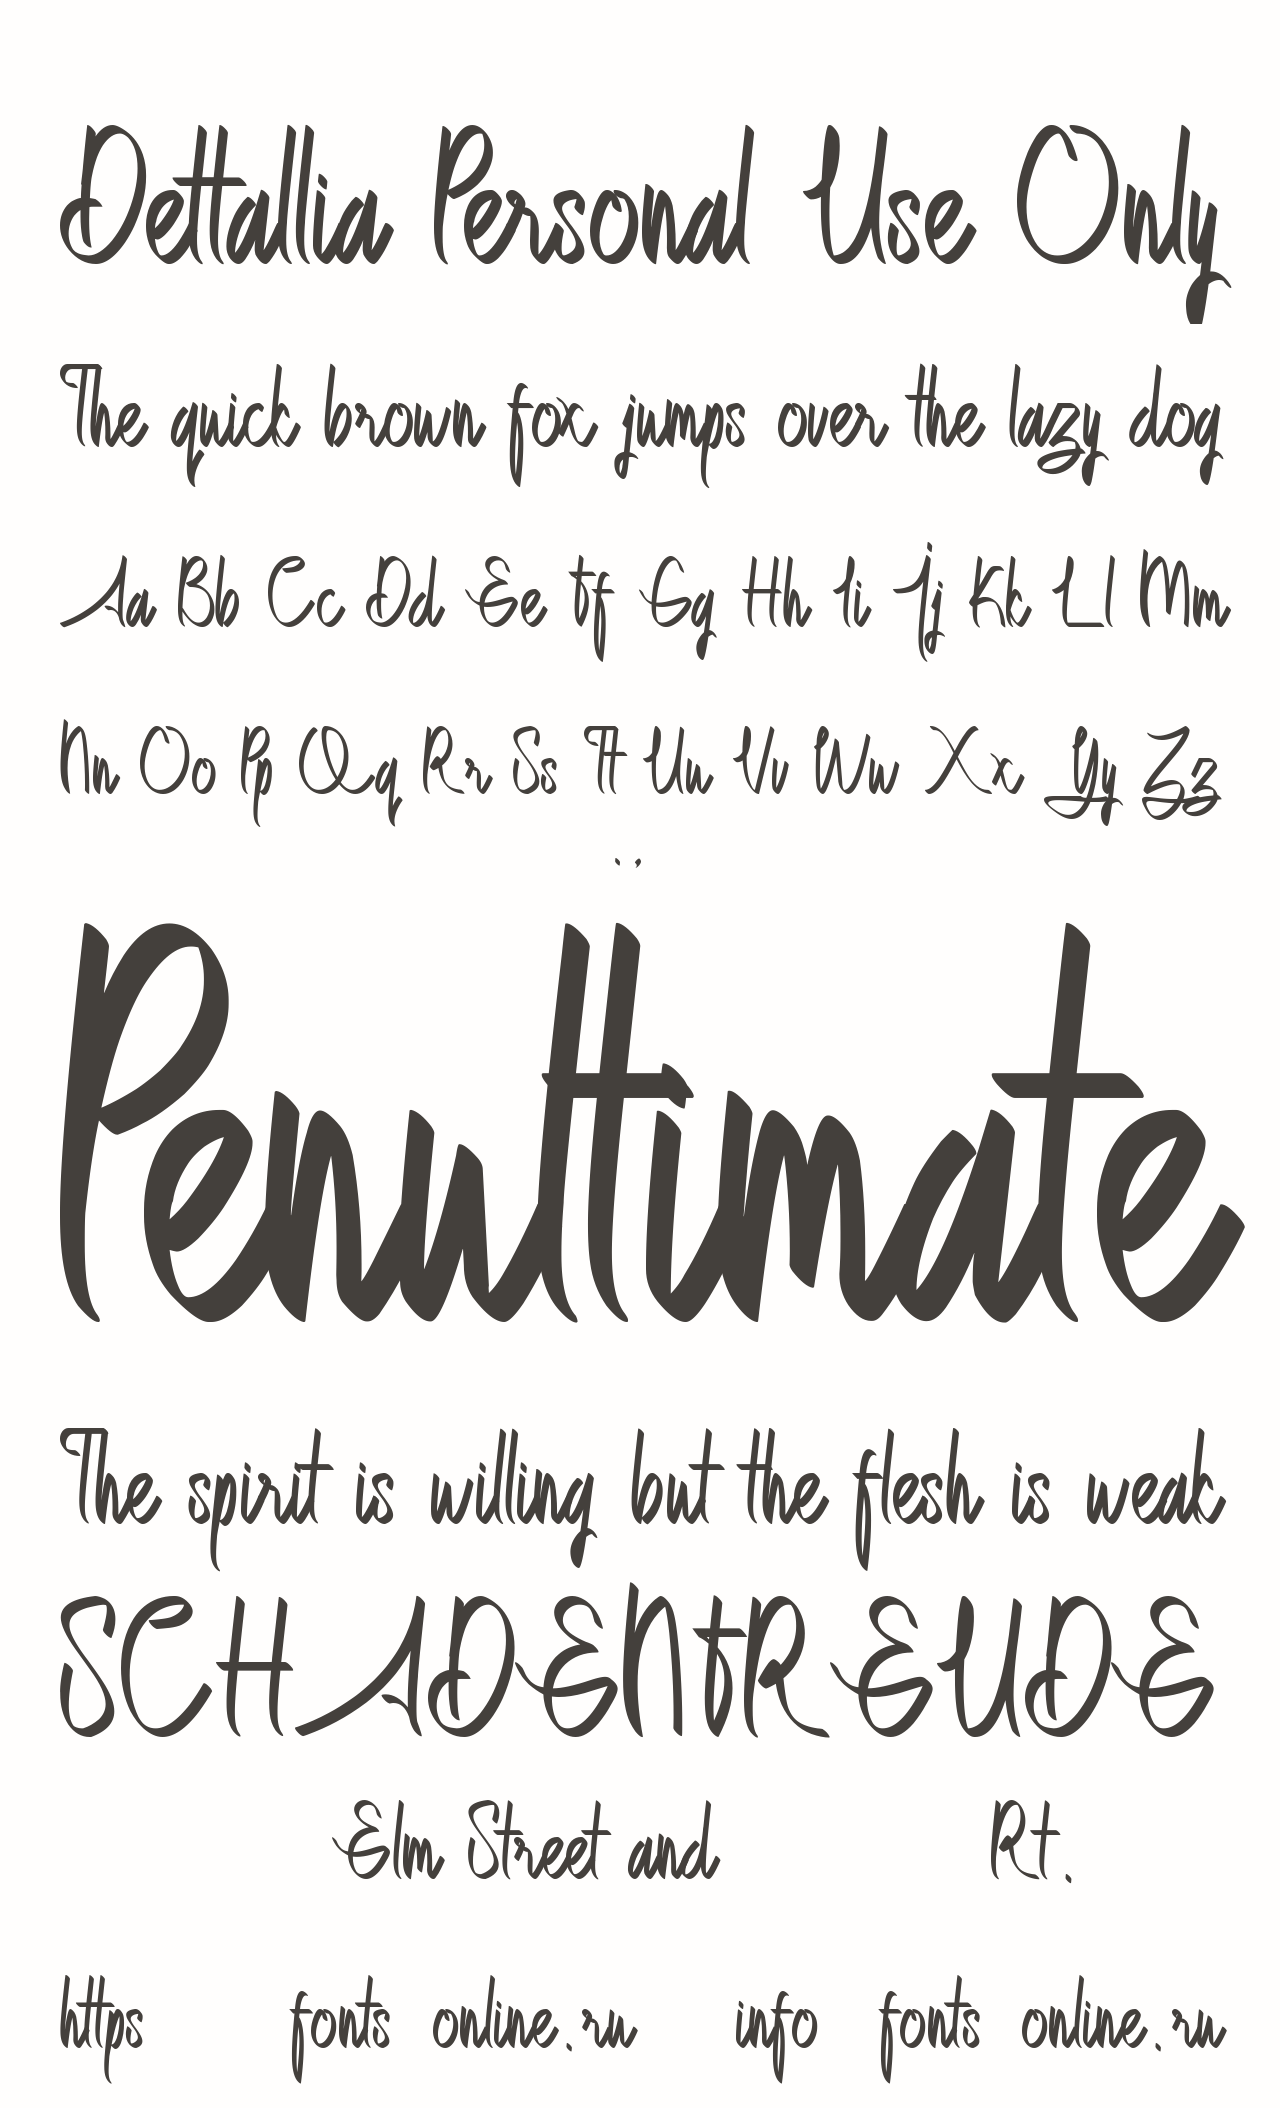 Dettallia Personal Use Only
The quick brown fox jumps over the lazy dog
Aa Bb Cc Dd Ee Ff Gg Hh Ii Jj Kk Ll Mm
Nn Oo Pp Qq Rr Ss Tt Uu Vv Ww Xx Yy Zz
. ,
Penultimate
The spirit is willing but the flesh is weak
SCHADENFREUDE
Elm Street and Rt.
https fonts online.ru info fonts online.ru